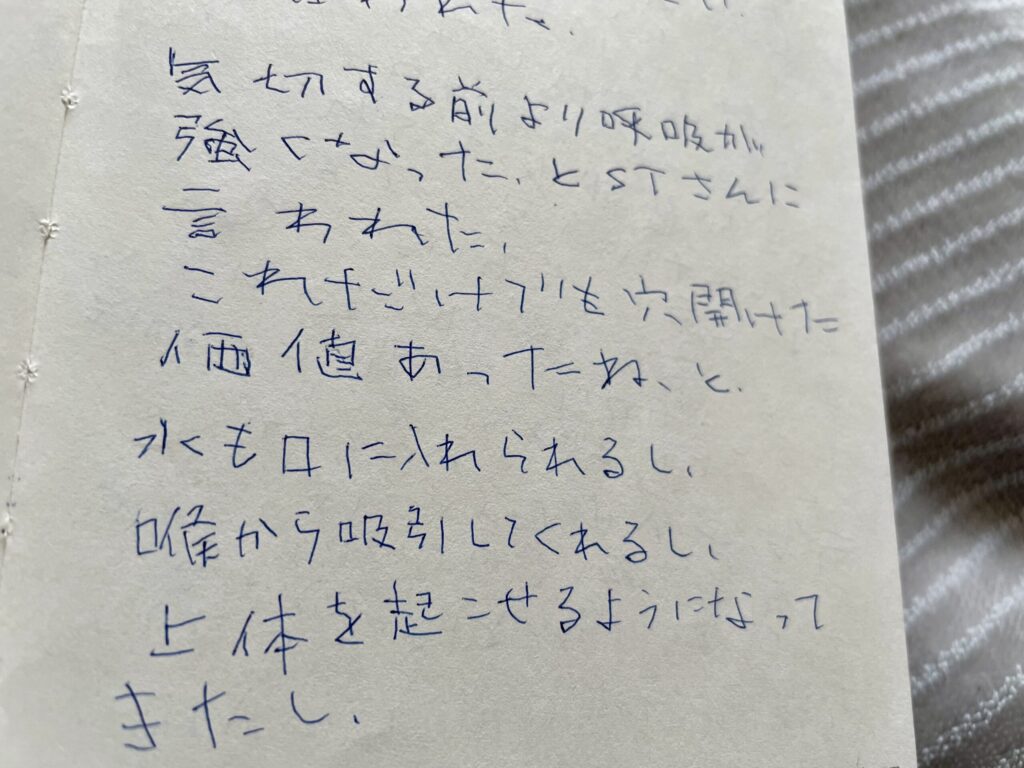 気切する前より呼吸が
強くなった、とSTさんに
言われた、
これだけでも穴開けた
価値あったね、と、
水も口に入れられるし、
喉から吸引してくれるし、
上体を起こせるようになって
きたし、